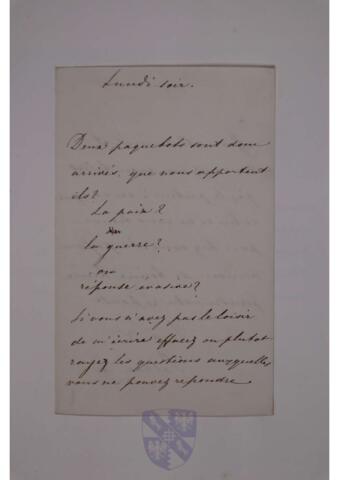 Lundi soir.
Deux paquebots sont donc
arrivés. que nous apportent
ils?
La paix?
la guerre?
ou
réponse evasive?
Si vous n'avez pas le loisir
de m'écrire effacez ou plutot
rayez les questions auxquelles
vous ne pouvez repondre